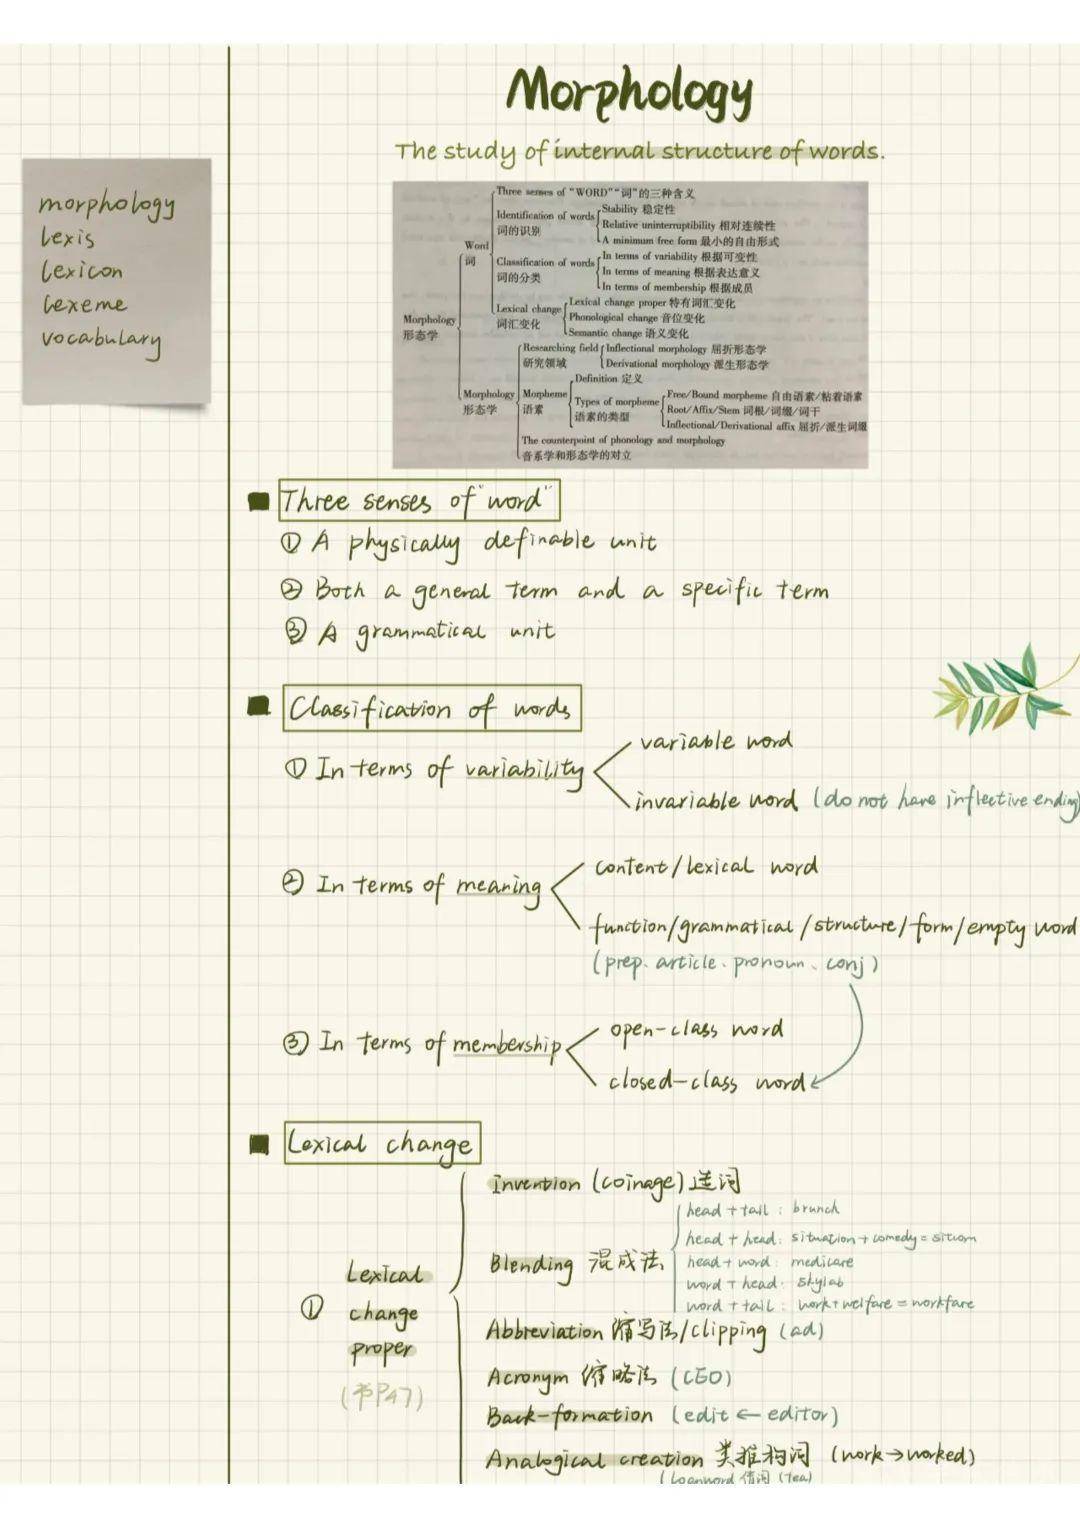 Morphology
The study of internal structure of words.
morphology
lexis
lexicon
lexeme
vocabulary
Three senses of "WORD" "词"的三种含义
Identification of words
词的识别
Stability 稳定性
Relative uninterruptibility 相对连续性
A minimum free form 最小的自由形式
Word
词
Classification of words
词的分类
In terms of variability 根据可变性
In terms of meaning 根据表达意义
In terms of membership 根据成员
Lexical change
词汇变化
Lexical change proper 特有词汇变化
Phonological change 音位变化
Semantic change 语义变化
Morphology
形态学
Researching field
研究领域
Inflectional morphology 屈折形态学
Derivational morphology 派生形态学
Morphology
形态学
Morpheme
语素
Definition 定义
Types of morpheme
语素的类型
Free/Bound morpheme 自由语素/粘着语素
Root/Affix/Stem 词根/词缀/词干
Inflectional/Derivational affix 屈折/派生词缀
The counterpoint of phonology and morphology
音系学和形态学的对立
Three senses of "word"
① A physically definable unit
② Both a general term and a specific term
③ A grammatical unit
Classification of words
① In terms of variability
variable word
invariable word (do not have inflective ending)
② In terms of meaning
content/lexical word
function/grammatical/structure/form/empty word
(prep. article. pronoun. conj)
③ In terms of membership
open-class word
closed-class word
Lexical change
① Lexical
change
proper
(书P47)
Invention (coinage)造词
Blending 混成法
head + tail: brunch
head + head: situation + comedy = sitcom
head + word: medicare
word + head: skylab
word + tail: work + welfare = workfare
Abbreviation 缩写法/clipping (ad)
Acronym 缩略法 (CEO)
Back-formation (edit ← editor)
Analogical creation 类推构词 (work→worked)
(Loanword 借词 (tea)